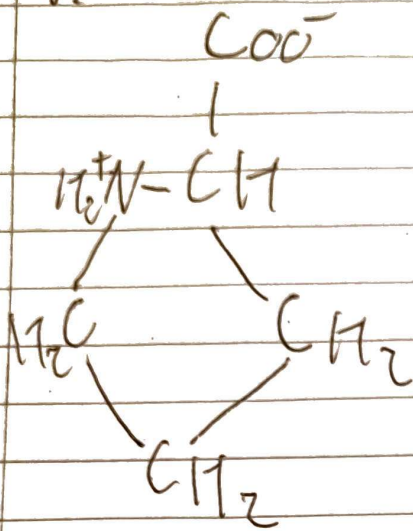 COO⁻
H₂⁺N–CH
H₂C CH₂
CH₂